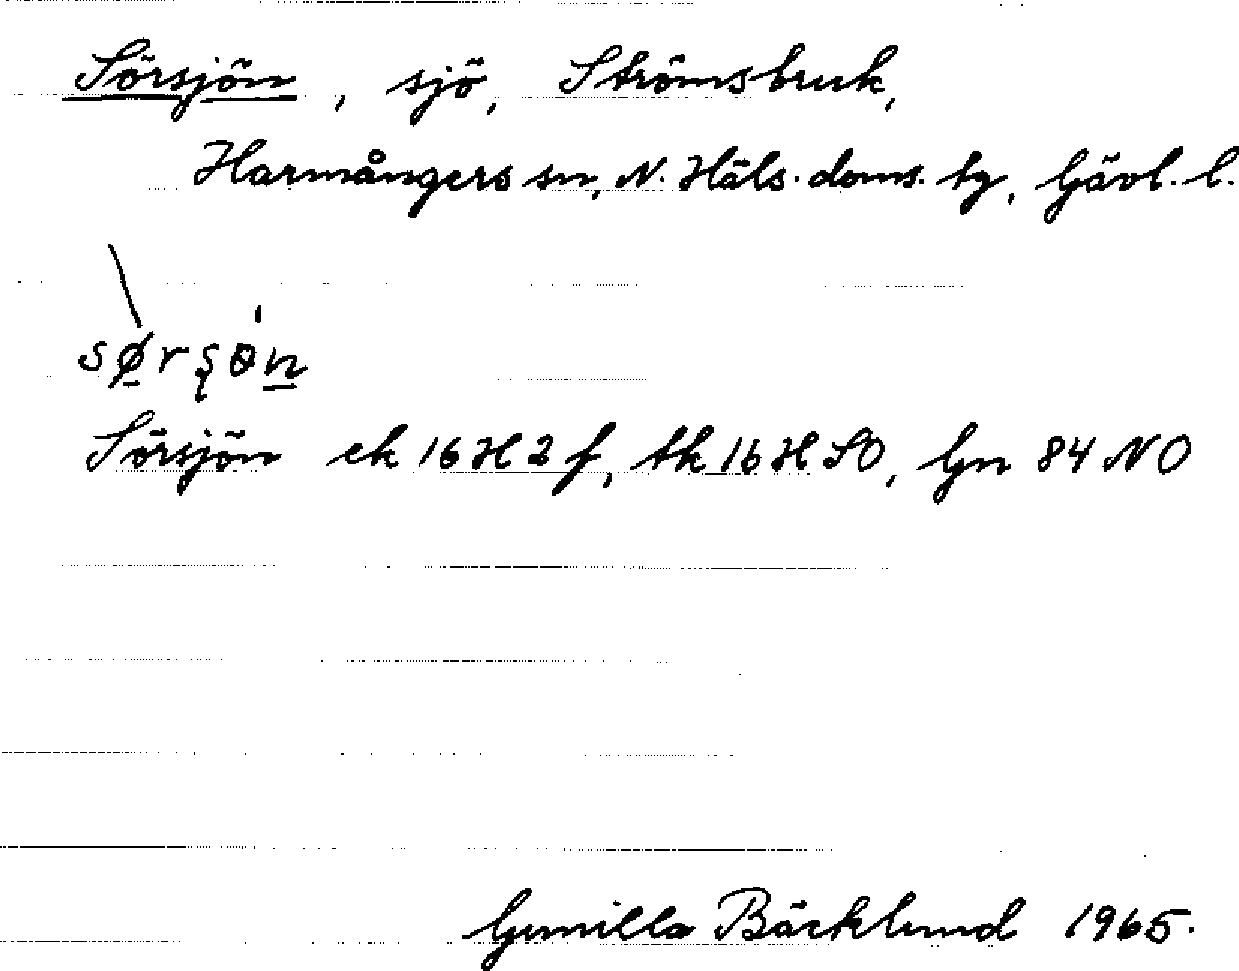 Sörsjön, sjö, Strömsbruk,
Harmångers sn, N. Häls. doms. tg, Gävl. l.
sø̠rʂɵn̠
Sörsjön ek 16H2f, tk 16H SO, Gn 84 NO
Gunilla Bäcklund 1965.